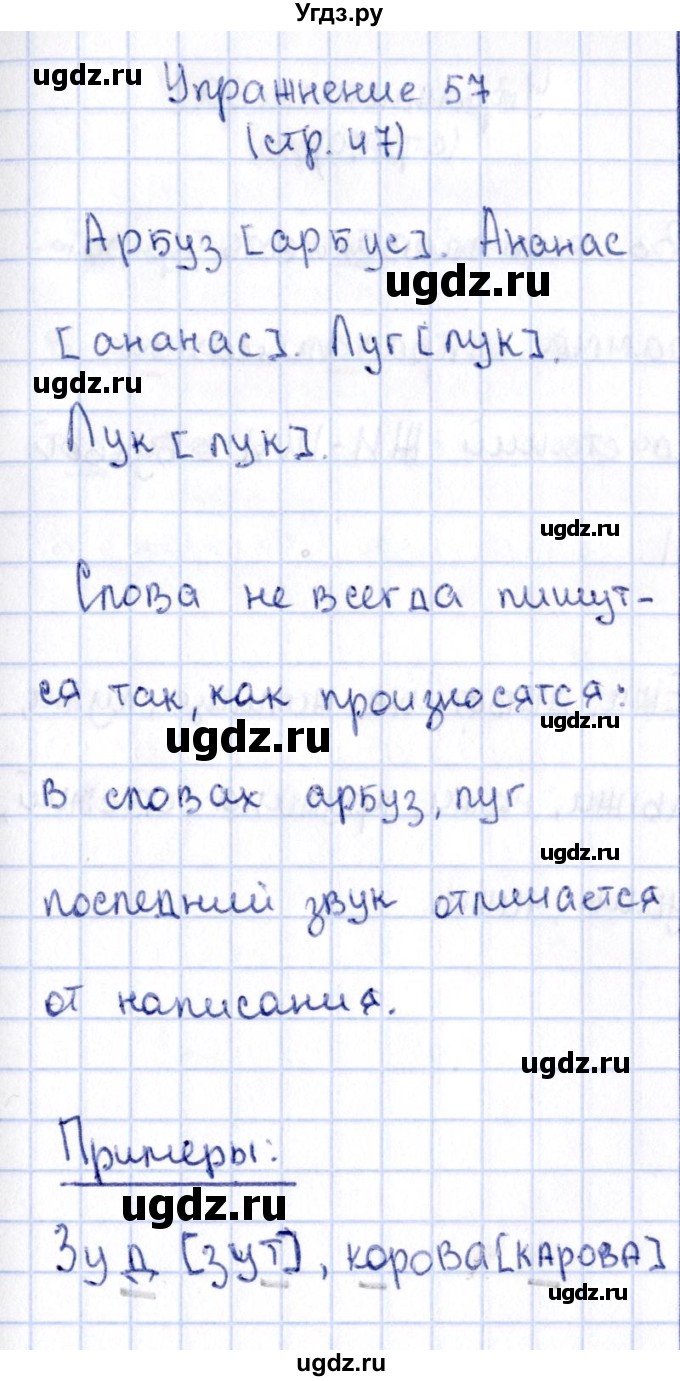 Угдз.ру
ugdz.ru
Упражнение 57
(стр. 47)
Арбуз [арбус]. Ананас
ugdz.ru
[ананас]. Луг [лук].
ugdz.ru
Лук [лук].
ugdz.ru
Слова не всегда пишут-
ся так, как произносятся:
ugdz.ru
ugdz.ru
в словах арбуз, луг
ugdz.ru
последний звук отличается
от написания.
ugdz.ru
Примеры:
ugdz.ru
Зуд [зут], корова [карова]
ugdz.ru
ugdz.ru